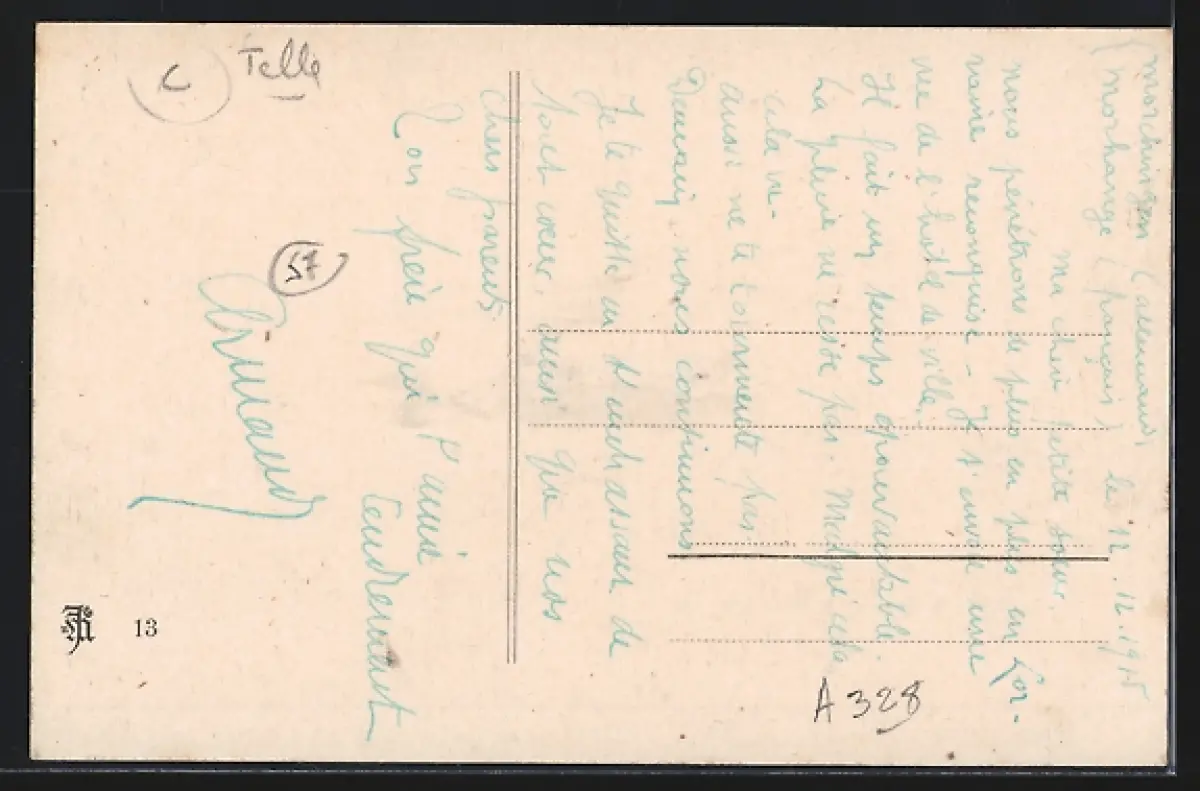 Morchingen (allemand)
Morhange (français) le 12.12.1918
Ma chère petite sœur.
nous pénétrons de plus en plus en Lor-
raine reconquise - Je t'envoie une
vue de l'hôtel de ville.
Il fait un temps épouvantable.
La pluie ne cesse pas. Malgré cela
cela va-
aussi ne te tourmente pas
Demain, nous continuons
Je te quitte en t'embrassant de
tout cœur, ainsi que nos
chers parents.
Ton frère qui t'aime
tendrement
C
Telle
57
A 328
13